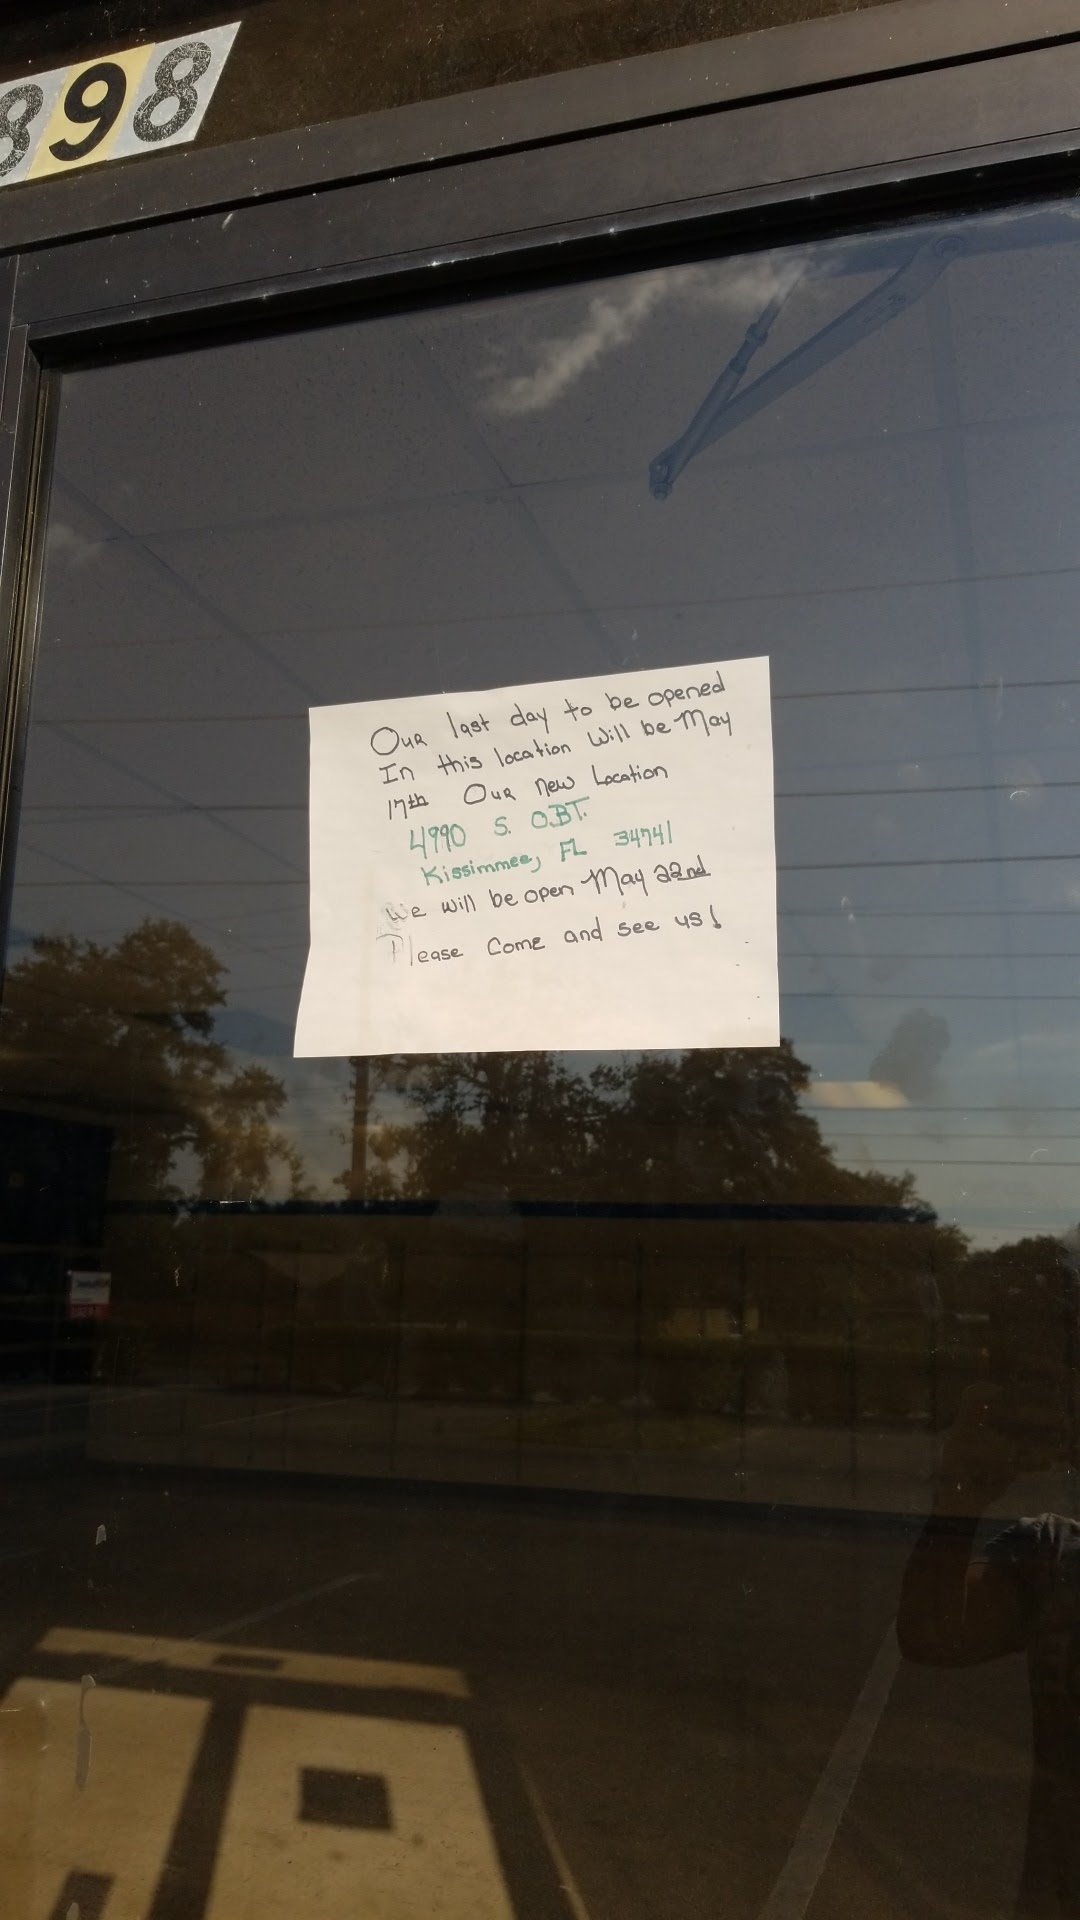 898
Our last day to be opened
In this location Will be May
17th Our new Location
4990 S. O.B.T.
Kissimmee, FL 34741
We will be open May 22nd
Please Come and see us!